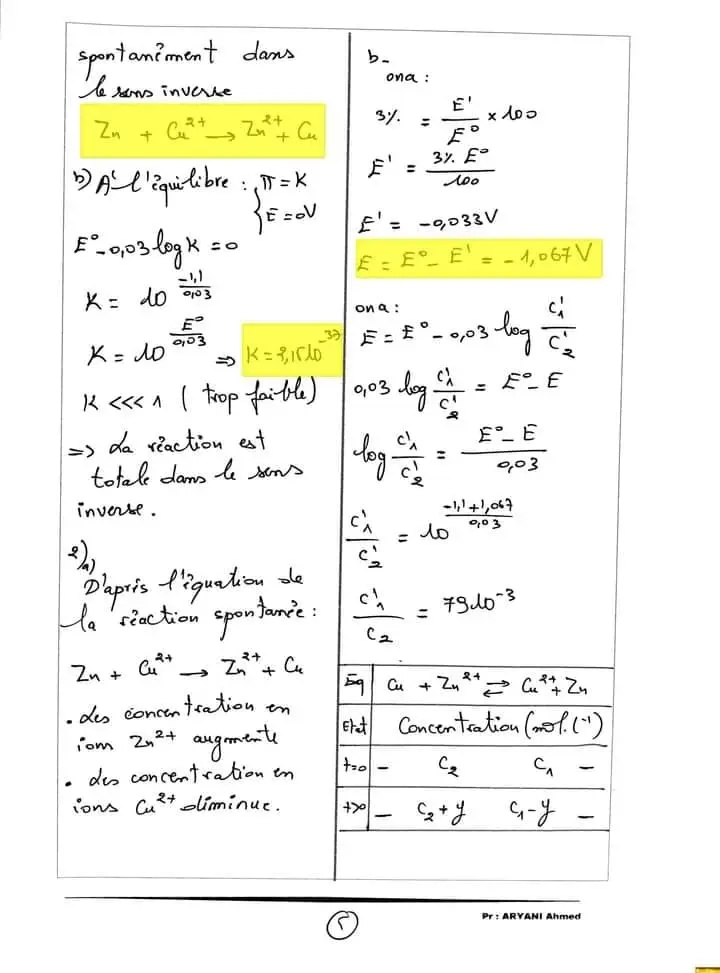 spontanément dans
le sens inverse
Zn + Cu²⁺ → Zn²⁺ + Cu
b) A l'équilibre : { π = K
E = 0V
E° - 0,03 log K = 0
K = 10^(-1,1/0,03)
K = 10^(E°/0,03) ⇒ K = 2,15 10⁻³⁷
K <<< 1 ( trop faible)
=> La réaction est
totale dans le sens
inverse.
2)
a)
D'après l'équation de
la réaction spontanée :
Zn + Cu²⁺ → Zn²⁺ + Cu
. des concentration en
ions Zn²⁺ augmente
. des concentration en
ions Cu²⁺ diminue.
b-
ona :
3% = E'/E° × 100
E' = 3% E°/100
E' = -0,033V
E = E° - E' = -1,067 V
ona :
E = E° - 0,03 log C'₁/C'₂
0,03 log C'₁/C'₂ = E° - E
log C'₁/C'₂ = (E° - E)/0,03
C'₁/C'₂ = 10^((-1,1+1,067)/0,03)
C'₁/C₂ = 79 10⁻³
Eq Cu + Zn²⁺ ⇌ Cu²⁺ + Zn
Etat Concentration (mol.L⁻¹)
t=0 - C₂ C₁ -
t>0 - C₂ + y C₁ - y -
Pr : ARYANI Ahmed